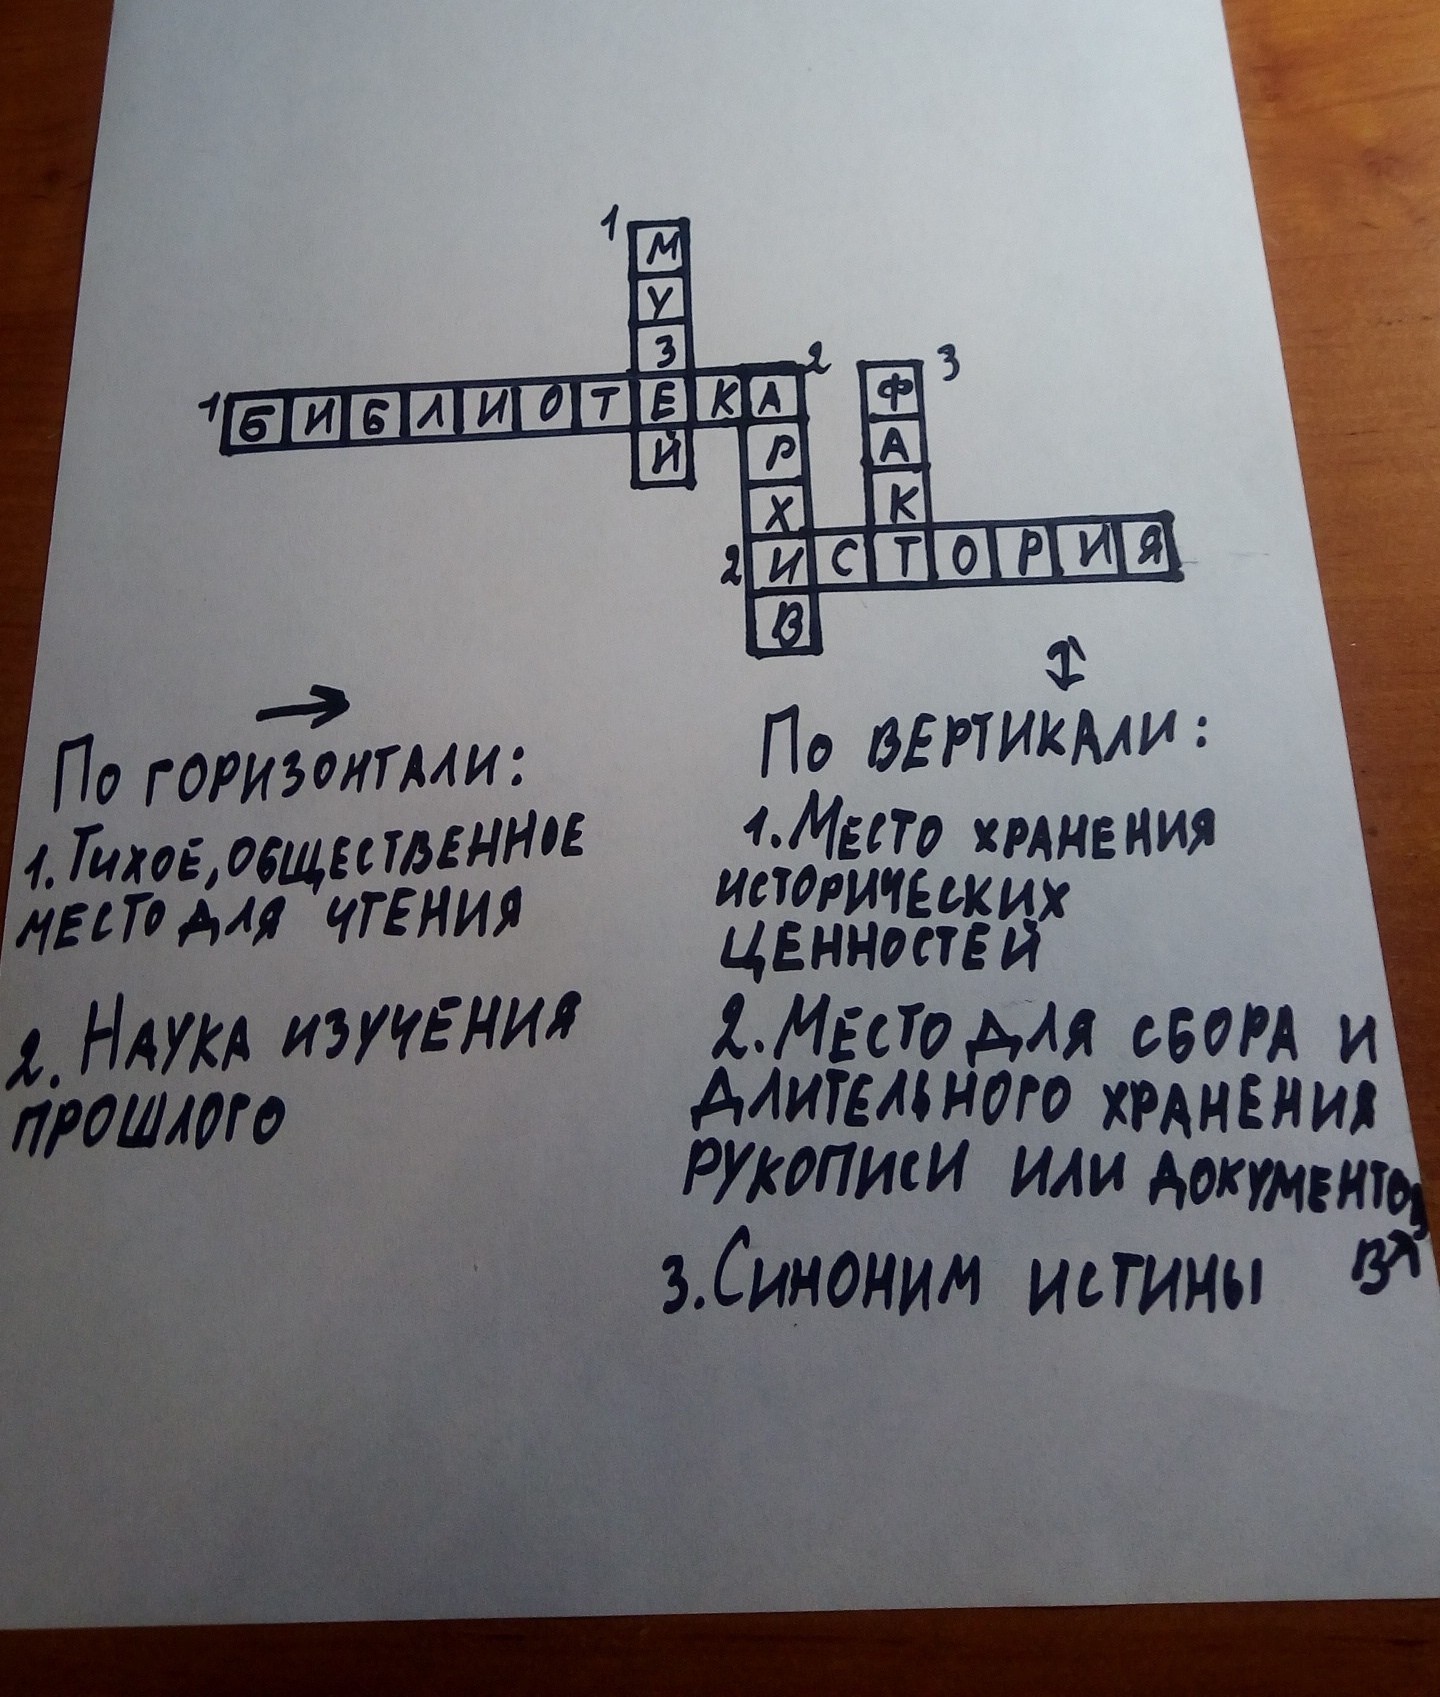 1
М
У
З
Е
Й
1 БИБЛИОТЕКА
2
А
Р
Х
И
В
3
Ф
А
К
Т
2 ИСТОРИЯ
→
По горизонтали:
1. Тихое, общественное
место для чтения
2. Наука изучения
прошлого
↕
По вертикали:
1. Место хранения
исторических
ценностей
2. Место для сбора и
длительного хранения
рукописи или документов
в
3. Синоним истины